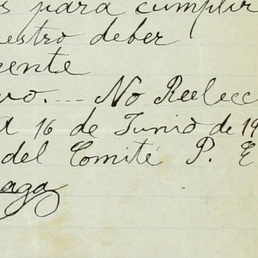 s para cumplir
estro deber
ente
vo. --- No Reelecc
d 16 de Junio de 19
del Comité P. E
aga